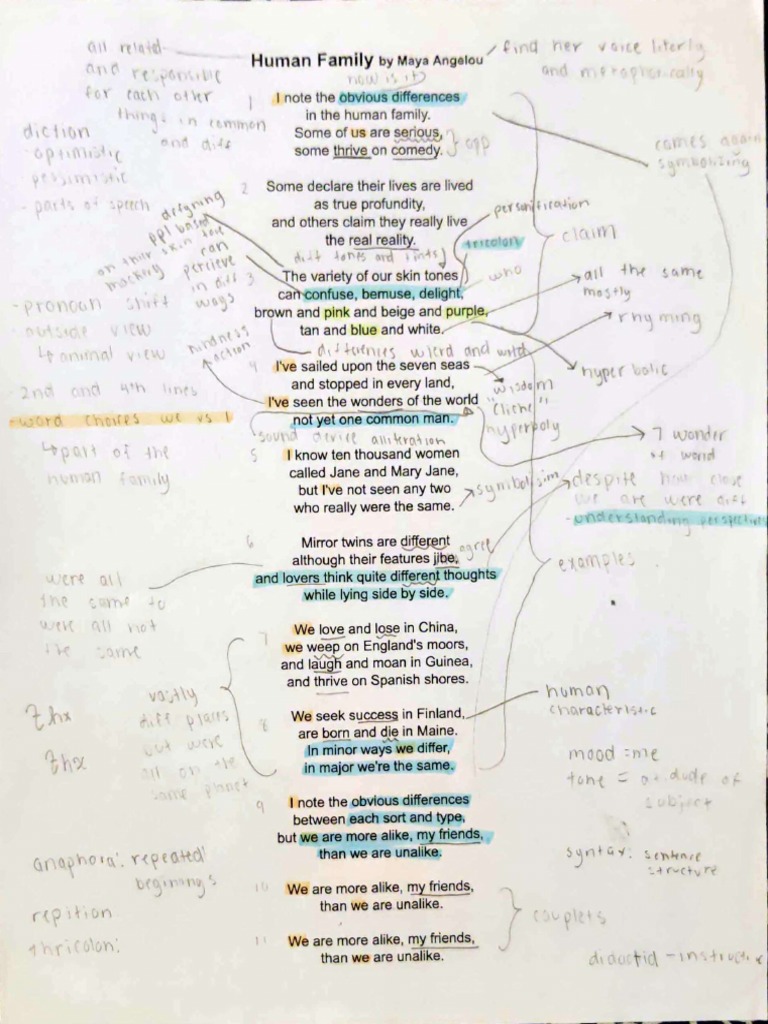 all related
and responsible
for each other
things in common
and diff
Human Family by Maya Angelou
now is it
find her voice literly
and metaphorically
diction
- optimistic
pessimistic
- parts of speech
1 I note the obvious differences
in the human family.
Some of us are serious,
some thrive on comedy. } opp
comes again
symbolizing
2 Some declare their lives are lived
as true profundity,
and others claim they really live
the real reality.
personification
tricolon
claim
ppl based
on their skin tone
mocking
can
percieve
in diff
ways
diff tones and tints
who
3 The variety of our skin tones
can confuse, bemuse, delight,
brown and pink and beige and purple,
tan and blue and white.
all the same
mostly
rhyming
hyperbolic
- pronoun shift
- outside view
↳ animal view
- 2nd and 4th lines
- word choices we vs I
↳ part of the
human family
kindness
action
differences
4 I've sailed upon the seven seas
and stopped in every land,
I've seen the wonders of the world
not yet one common man.
wisdom
"cliche"
hyperpoly
7 wonder
of world
sound device alliteration
5 I know ten thousand women
called Jane and Mary Jane,
but I've not seen any two
who really were the same.
symbolisim
despite how close
we are were diff
- understanding perspective
6 Mirror twins are different
although their features jibe,
agree
and lovers think quite different thoughts
while lying side by side.
examples
were all
the same to
were all not
the same
7 We love and lose in China,
we weep on England's moors,
and laugh and moan in Guinea,
and thrive on Spanish shores.
vastly
diff places
but were
all on the
same planet
8 We seek success in Finland,
are born and die in Maine.
In minor ways we differ,
in major we're the same.
human
characteristic
mood = me
tone = of
subject
9 I note the obvious differences
between each sort and type,
but we are more alike, my friends,
than we are unalike.
syntax: sentence
structure
anaphora: repeated
beginings
repition
thricolon:
10 We are more alike, my friends,
than we are unalike.
couplets
11 We are more alike, my friends,
than we are unalike.